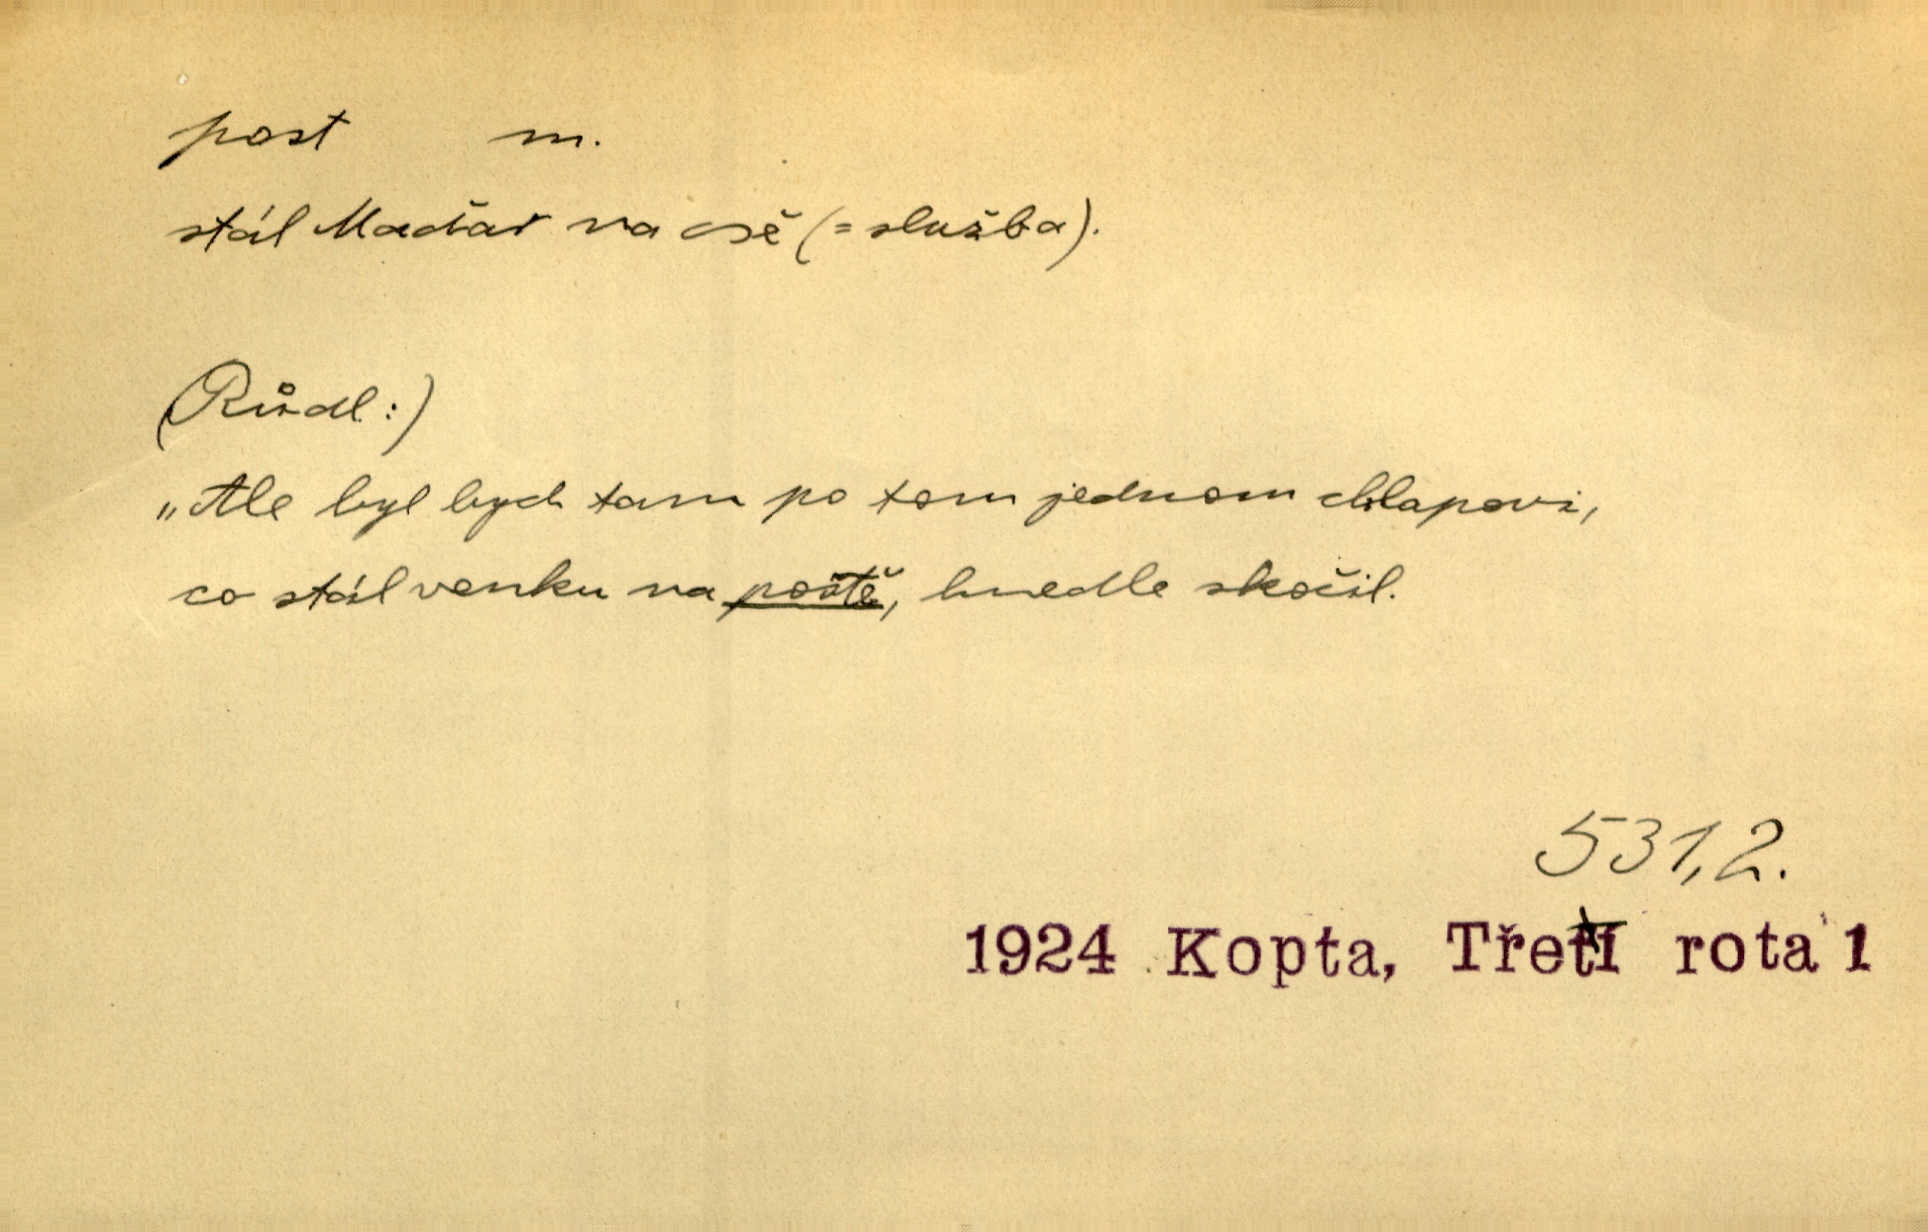 post m.
stál Maďar na osě (= služba).
(Růdl:)
„Ale byl bych tam po tom jednom chlapovi,
co stál venku na poště, hnedle skočil.
531,2.
1924 Kopta, Třetí rota 1